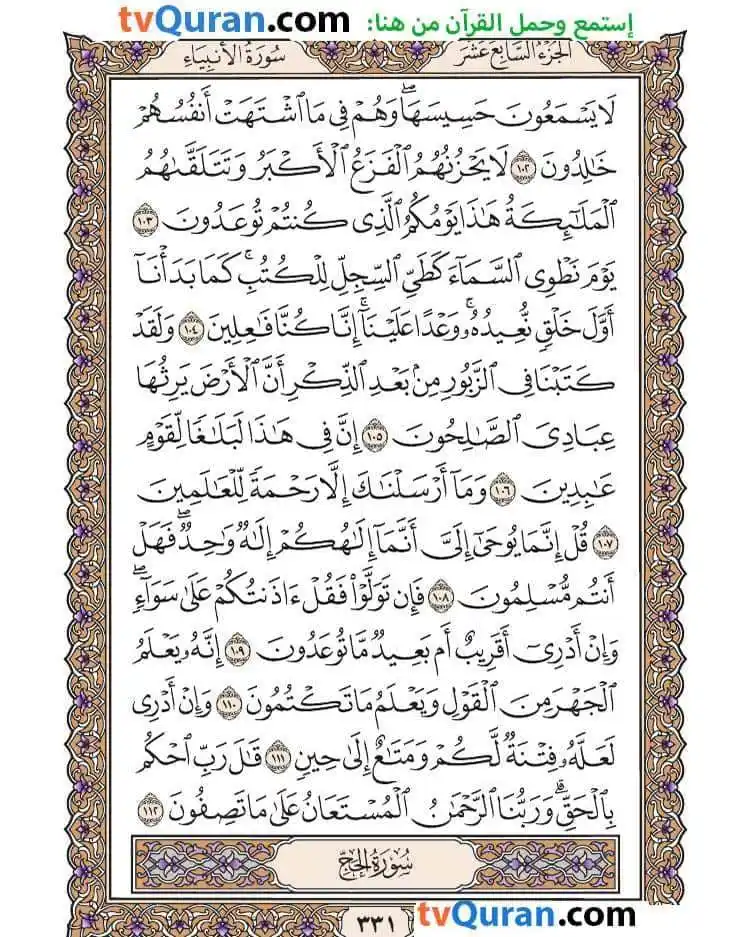 tvQuran.com إستمع وحمل القرآن من هنا:
الجزء السابع عشر
سورة الأنبياء
لَا يَسْمَعُونَ حَسِيسَهَاۖ وَهُمْ فِي مَا ٱشْتَهَتْ أَنفُسُهُمْ
خَٰلِدُونَ ١٠٢ لَا يَحْزُنُهُمُ ٱلْفَزَعُ ٱلْأَكْبَرُ وَتَتَلَقَّىٰهُمُ
ٱلْمَلَٰٓئِكَةُ هَٰذَا يَوْمُكُمُ ٱلَّذِي كُنتُمْ تُوعَدُونَ ١٠٣
يَوْمَ نَطْوِي ٱلسَّمَآءَ كَطَيِّ ٱلسِّجِلِّ لِلْكُتُبِۚ كَمَا بَدَأْنَآ
أَوَّلَ خَلْقٍ نُّعِيدُهُۥۚ وَعْدًا عَلَيْنَآۚ إِنَّا كُنَّا فَٰعِلِينَ ١٠٤ وَلَقَدْ
كَتَبْنَا فِي ٱلزَّبُورِ مِنۢ بَعْدِ ٱلذِّكْرِ أَنَّ ٱلْأَرْضَ يَرِثُهَا
عِبَادِيَ ٱلصَّٰلِحُونَ ١٠٥ إِنَّ فِي هَٰذَا لَبَلَٰغًا لِّقَوْمٍ
عَٰبِدِينَ ١٠٦ وَمَآ أَرْسَلْنَٰكَ إِلَّا رَحْمَةً لِّلْعَٰلَمِينَ
١٠٧ قُلْ إِنَّمَا يُوحَىٰٓ إِلَيَّ أَنَّمَآ إِلَٰهُكُمْ إِلَٰهٌ وَٰحِدٌۖ فَهَلْ
أَنتُم مُّسْلِمُونَ ١٠٨ فَإِن تَوَلَّوْا۟ فَقُلْ ءَاذَنتُكُمْ عَلَىٰ سَوَآءٍۖ
وَإِنْ أَدْرِيٓ أَقَرِيبٌ أَم بَعِيدٌ مَّا تُوعَدُونَ ١٠٩ إِنَّهُۥ يَعْلَمُ
ٱلْجَهْرَ مِنَ ٱلْقَوْلِ وَيَعْلَمُ مَا تَكْتُمُونَ ١١٠ وَإِنْ أَدْرِي
لَعَلَّهُۥ فِتْنَةٌ لَّكُمْ وَمَتَٰعٌ إِلَىٰ حِينٍ ١١١ قَٰلَ رَبِّ ٱحْكُم
بِٱلْحَقِّۗ وَرَبُّنَا ٱلرَّحْمَٰنُ ٱلْمُسْتَعَانُ عَلَىٰ مَا تَصِفُونَ ١١٢
سُورَةُ الحَجِّ
٣٣١
tvQuran.com